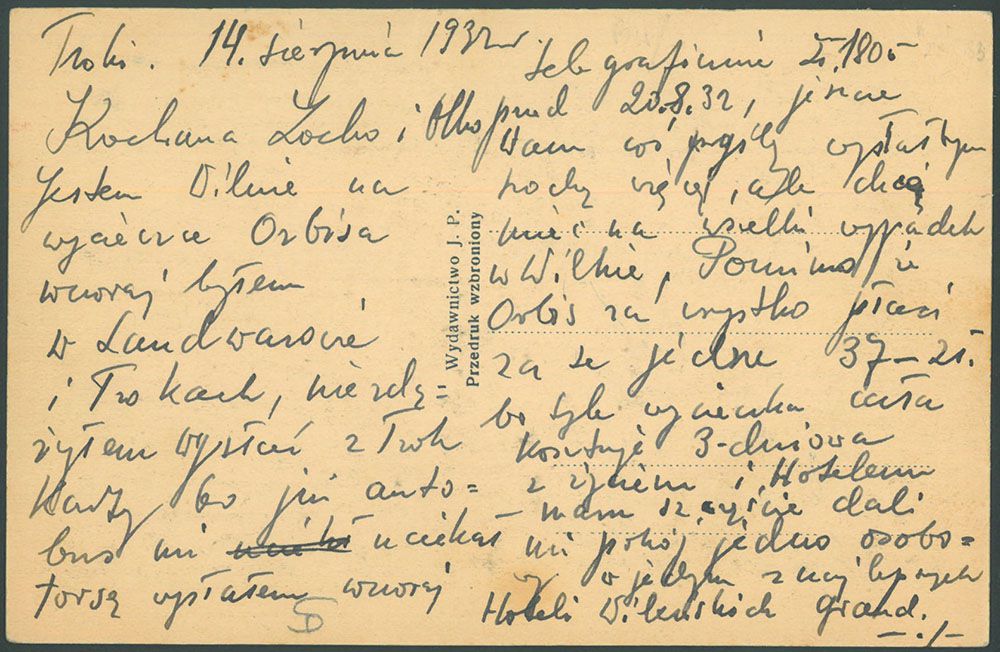 Troki. 14. sierpnia 1932 r.
Kochana Zocho i Olko
Jestem Wilnie na
wycieczce Orbisa
wczoraj byłem
w Landwarowie
i Trokach, nie zdą=
żyłem wysłać z Trok
Karty bo już auto=
bus mi uciekał
forsę wysłałem wczoraj
Wydawnictwo J. P.
Przedruk wzbroniony
telegraficznie zł. 180
przed 20.8.32, jeszcze
Wam coś przyślę wysłałbym
trochę więcej, ale chcę
mieć na wszelki wypadek
w Wilnie, Pomimo że
Orbis za wszystko płaci
za te jedne 37 - zł.
bo tyle wycieczka cała
kosztuje 3-dniowa
z życiem i Hotelem
- mam szczęście dali
mi pokój jedno osobo=
wy w jednym z najlepszych
Hoteli Wileńskich Grand.
-./-